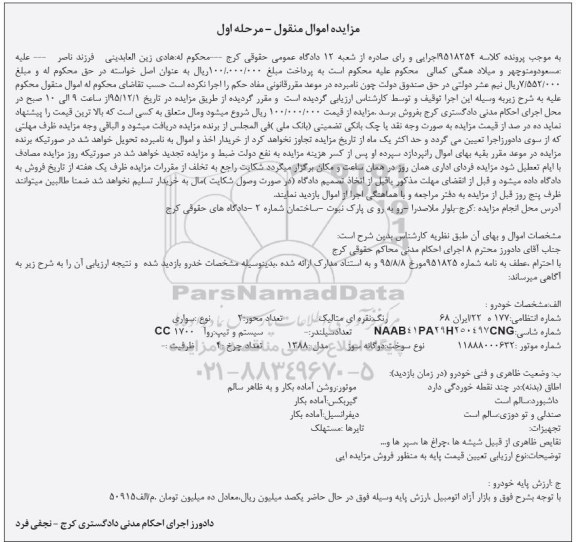 مزایده اموال منقول - مرحله اول
به موجب پرونده کلاسه 9518254اجرایی و رای صادره از شعبه 12 دادگاه عمومی حقوقی کرج ---محکوم له:هادی زین العابدینی فرزند ناصر --- علیه
:مسعودومنوچهر و میلاد همگی کمالی محکوم علیه محکوم است به پرداخت مبلغ 100/000/000ریال به عنوان اصل خواسته در حق محکوم له و مبلغ
7/552/000ریال نیم عشر دولتی در حق صندوق دولت چون نامبرده در موعد مقررقانونی مفاد حکم را اجرا نکرده است حسب تقاضای محکوم له اموال منقول محکوم
علیه به شرح زیربه وسیله این اجرا توقیف و توسط کارشناس ارزیابی گردیده است و مقرر گردیده از طریق مزایده در تاریخ 95/12/1از ساعت 9 الی 10 صبح در
محل اجرای احکام مدنی دادگستری کرج بفروش برسد .مزایده از قیمت 100/000/000 ریال شروع میشود ومال متعلق به کسی است که بالا ترین قیمت را پیشنهاد
نماید ده در صد از قیمت مزایده به صورت وجه نقد یا چک بانکی تضمینی (بانک ملی )فی المجلس از برنده مزایده دریافت میشود و الباقی وجه مزایده ظرف مهلتی
که از سوی دادورزاجرا تعیین می گردد و حد اکثر یک ماه از تاریخ مزایده تجاوز نخواهد کرد از خریدار اخذ و اموال به نامبرده تحویل خواهد شد در صورتیکه برنده
مزایده در موعد مقرر بقیه بهای اموال رانپردازد سپرده او پس از کسر هزینه مزایده به نفع دولت ضبط و مزایده تجدید خواهد شد در صورتیکه روز مزایده مصادف
با ایام تعطیل شود مزایده فردای اداری همان روز در همان ساعت و مکان برگزار میگردد شکایت راجع به تخلف از مقررات مزایده ظرف یک هفته از تاریخ فروش به
دادگاه داده میشود و قبل از انقضای مهلت مذکور یاقبل از اتخاذ تصمیم دادگاه (در صورت وصول شکایت )مال به خریدار تسلیم نخواهد شد ضمنا طالبین میتوانند
ظرف پنج روز قبل از مزایده به دفتر مراجعه و با هماهنگی اجرا از اموال بازدید نمایند.
آدرس محل انجام مزایده :کرج-بلوار ملاصدرا -رو به رو ی پارک نبوت -ساختمان شماره 2 -دادگاه های حقوقی کرج
مشخصات اموال و بهای آن طبق نظریه کارشناس بدین شرح است:
جناب آقای دادورز محترم 8 اجرای احکام مدنی محاکم حقوقی کرج
با احترام ،عطف به نامه شماره 951825مورخ 95/8/8 و به استناد مدارک ارائه شده ،بدینوسیله مشخصات خدرو بازدید شده و نتیجه ارزیابی آن را به شرح زیر به
آگاهی میرساند:
الف:مشخصات خودرو :
شماره انتظامی:177 ه 22ایران 68 رنگ:نقره ای متالیک تعداد محور:2 نوع :سواری
شماره شاسی:NAAB41PA29H250497CNG تعدادسیلندر:- سیستم و تیپ:روآ 1700 CC
شماره موتور :11888000632 نوع سوخت:دوگانه سوز مدل :1388 تعداد چرخ :4 ظرفیت :-
ب: وضعیت ظاهری و فنی خودرو (در زمان بازدید):
اطاق (بدنه):در چند نقطه خوردگی دارد موتور:روشن آماده بکار و به ظاهر سالم
داشبورد:سالم است گیربکس:آماده بکار
صندلی و تو دوزی:سالم است دیفرانسیل:آماده بکار
تجهیزات: تایرها :مستهلک
نقایص ظاهری از قبیل شیشه ها ،چراغ ها ،سپر ها و...
توضیحات:نوع ارزیابی تعیین قیمت پایه به منظور فروش مزایده ایی
ج :ارزش پایه خودرو :
با توجه بشرح فوق و بازار آزاد اتومبیل ،ارزش پایه وسیله فوق در حال حاضر یکصد میلیون ریال،معادل ده میلیون تومان .م/الف50915
دادورز اجرای احکام مدنی دادگستری کرج - نجفی فرد
ParsNamadData
021-88349670-5